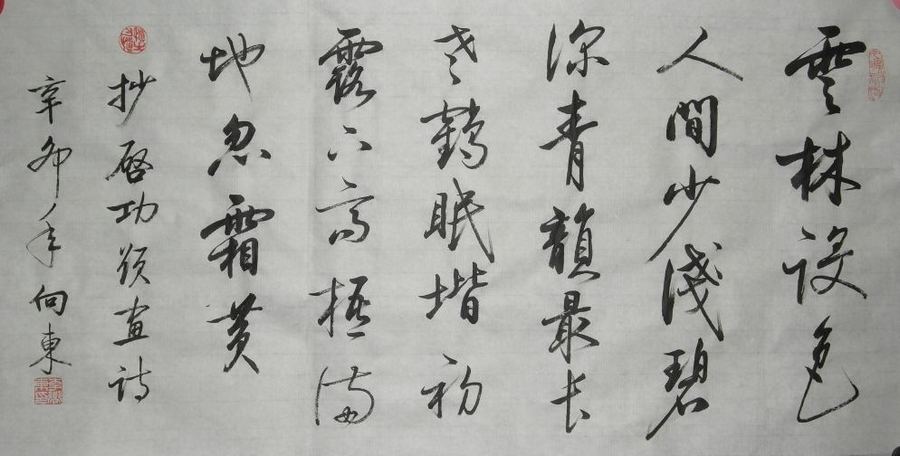 雲林設色
人間少淺碧
深青韻最长
老鶴眠堦初
露下高梧滿
地忽霜黄
抄啓功題画诗
辛卯年向東